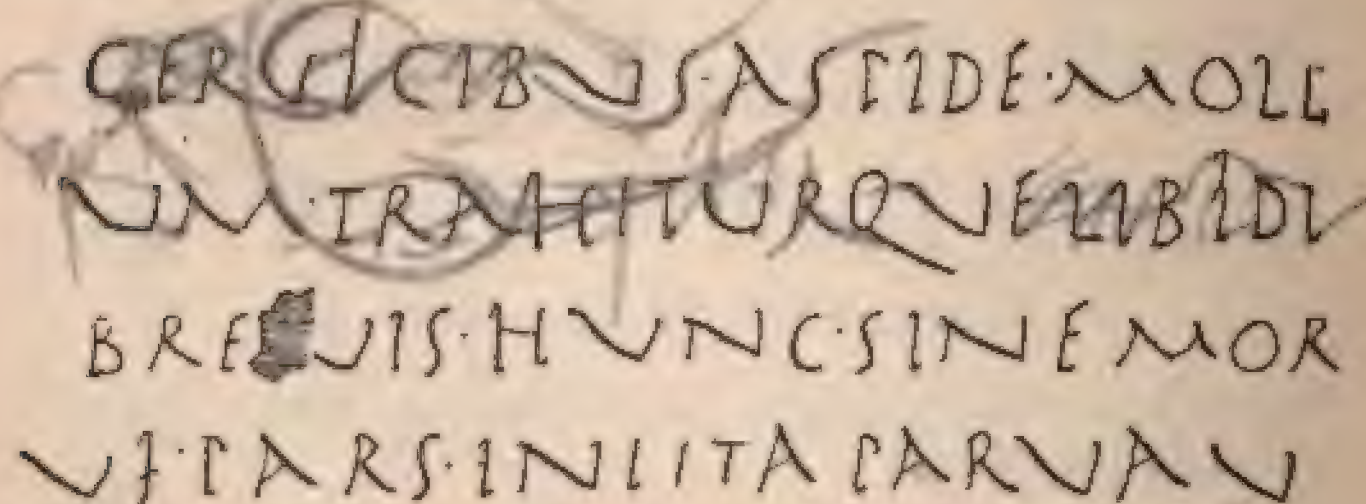 CERVICIBVS·ASPIDE·MOLL
VM·TRAHITVRQVELIBIDI
BREVIS·HVNC·SINEMOR
VI·PARS·INLITAPARVAV